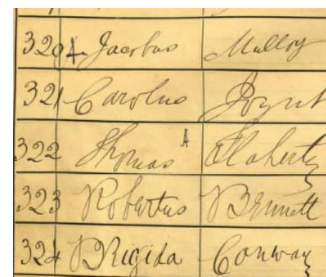 320 Jacobus Mulloy
321 Carolus Joynt
322 Thomas A Flaherty
323 Robertus Bennett
324 Brigida Conway